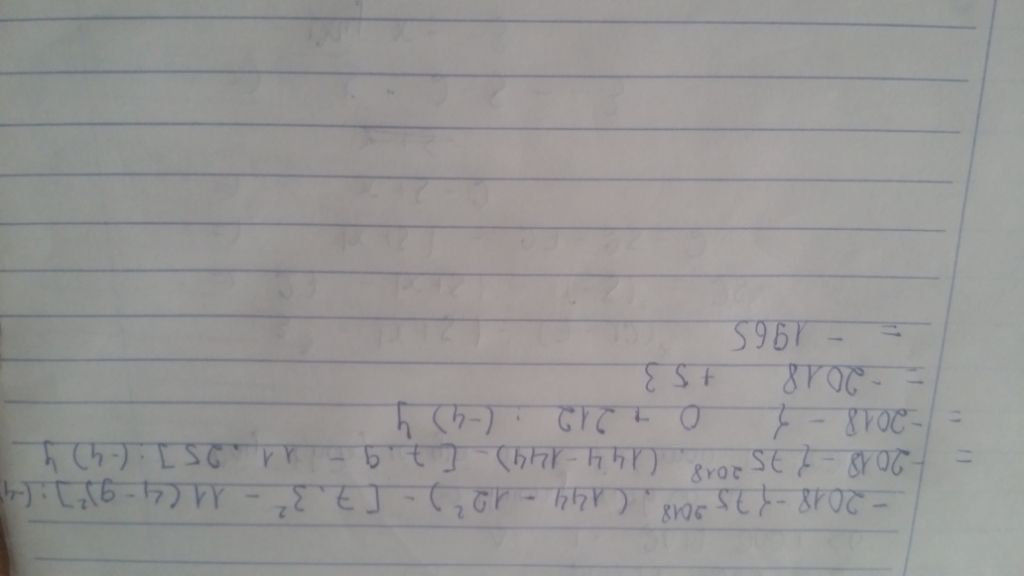 -2018 - {75²⁰¹⁸ . (144 - 12²) - [7.3² - 11(4-9)²] : (-4
= -2018 - {75²⁰¹⁸ (144-144) - [7.9 - 11.25] : (-4)}
= -2018 - { 0 + 212 : (-4)}
= -2018 + 53
= - 1965